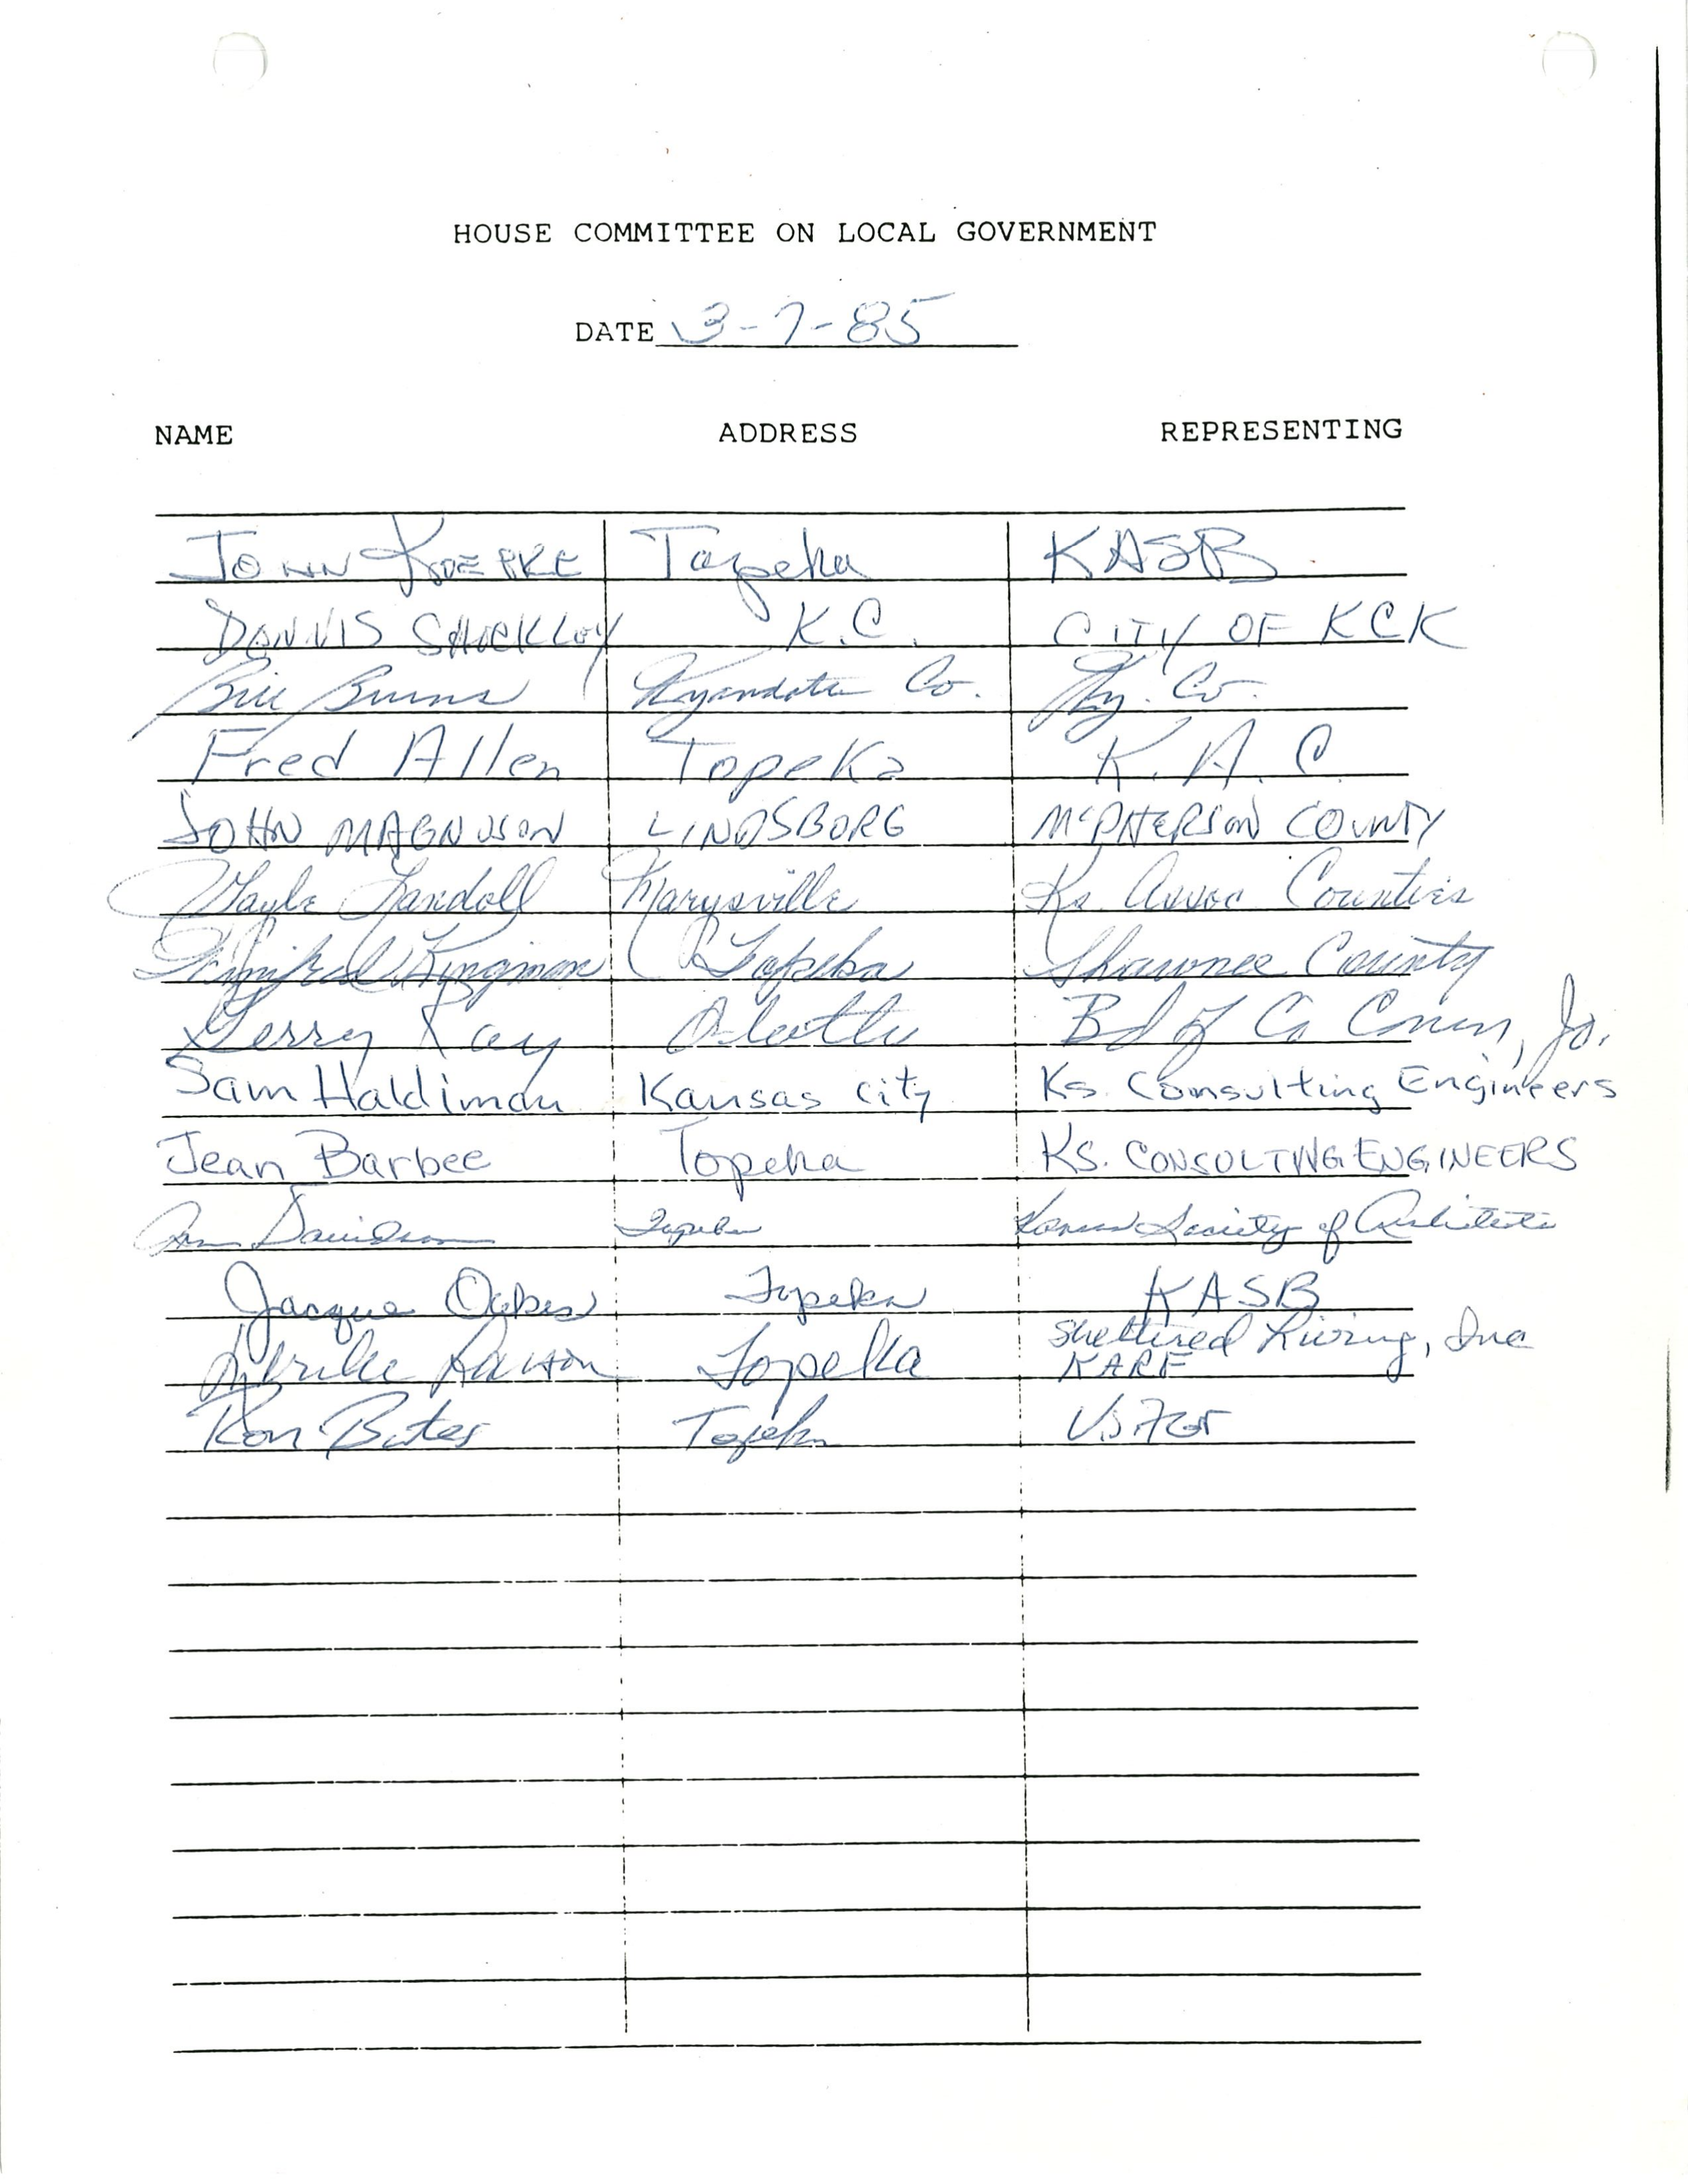 HOUSE COMMITTEE ON LOCAL GOVERNMENT
DATE 3-7-85
NAME ADDRESS REPRESENTING
JOHN KOEPKE Topeka KASB
DENNIS SHOCKLEY K.C. CITY OF KCK
Bill Burns Wyandotte Co. Wy. Co.
Fred Allen Topeka K.A.C.
JOHN MAGNUSON LINDSBORG McPHERSON COUNTY
Gayle Landoll Marysville Ks. Assoc Counties
Winifred Kingman Topeka Shawnee County
Gerry Ray Olathe Bd of Co Comm, Jo.
Sam Haldiman Kansas City Ks. Consulting Engineers
Jean Barbee Topeka Ks. CONSULTING ENGINEERS
Davidson Topeka Kansas Society of Architects
Jacque Oakes Topeka KASB
Sheltered Living, Inc
Topeka KARF
Ron Bates Topeka Visitor